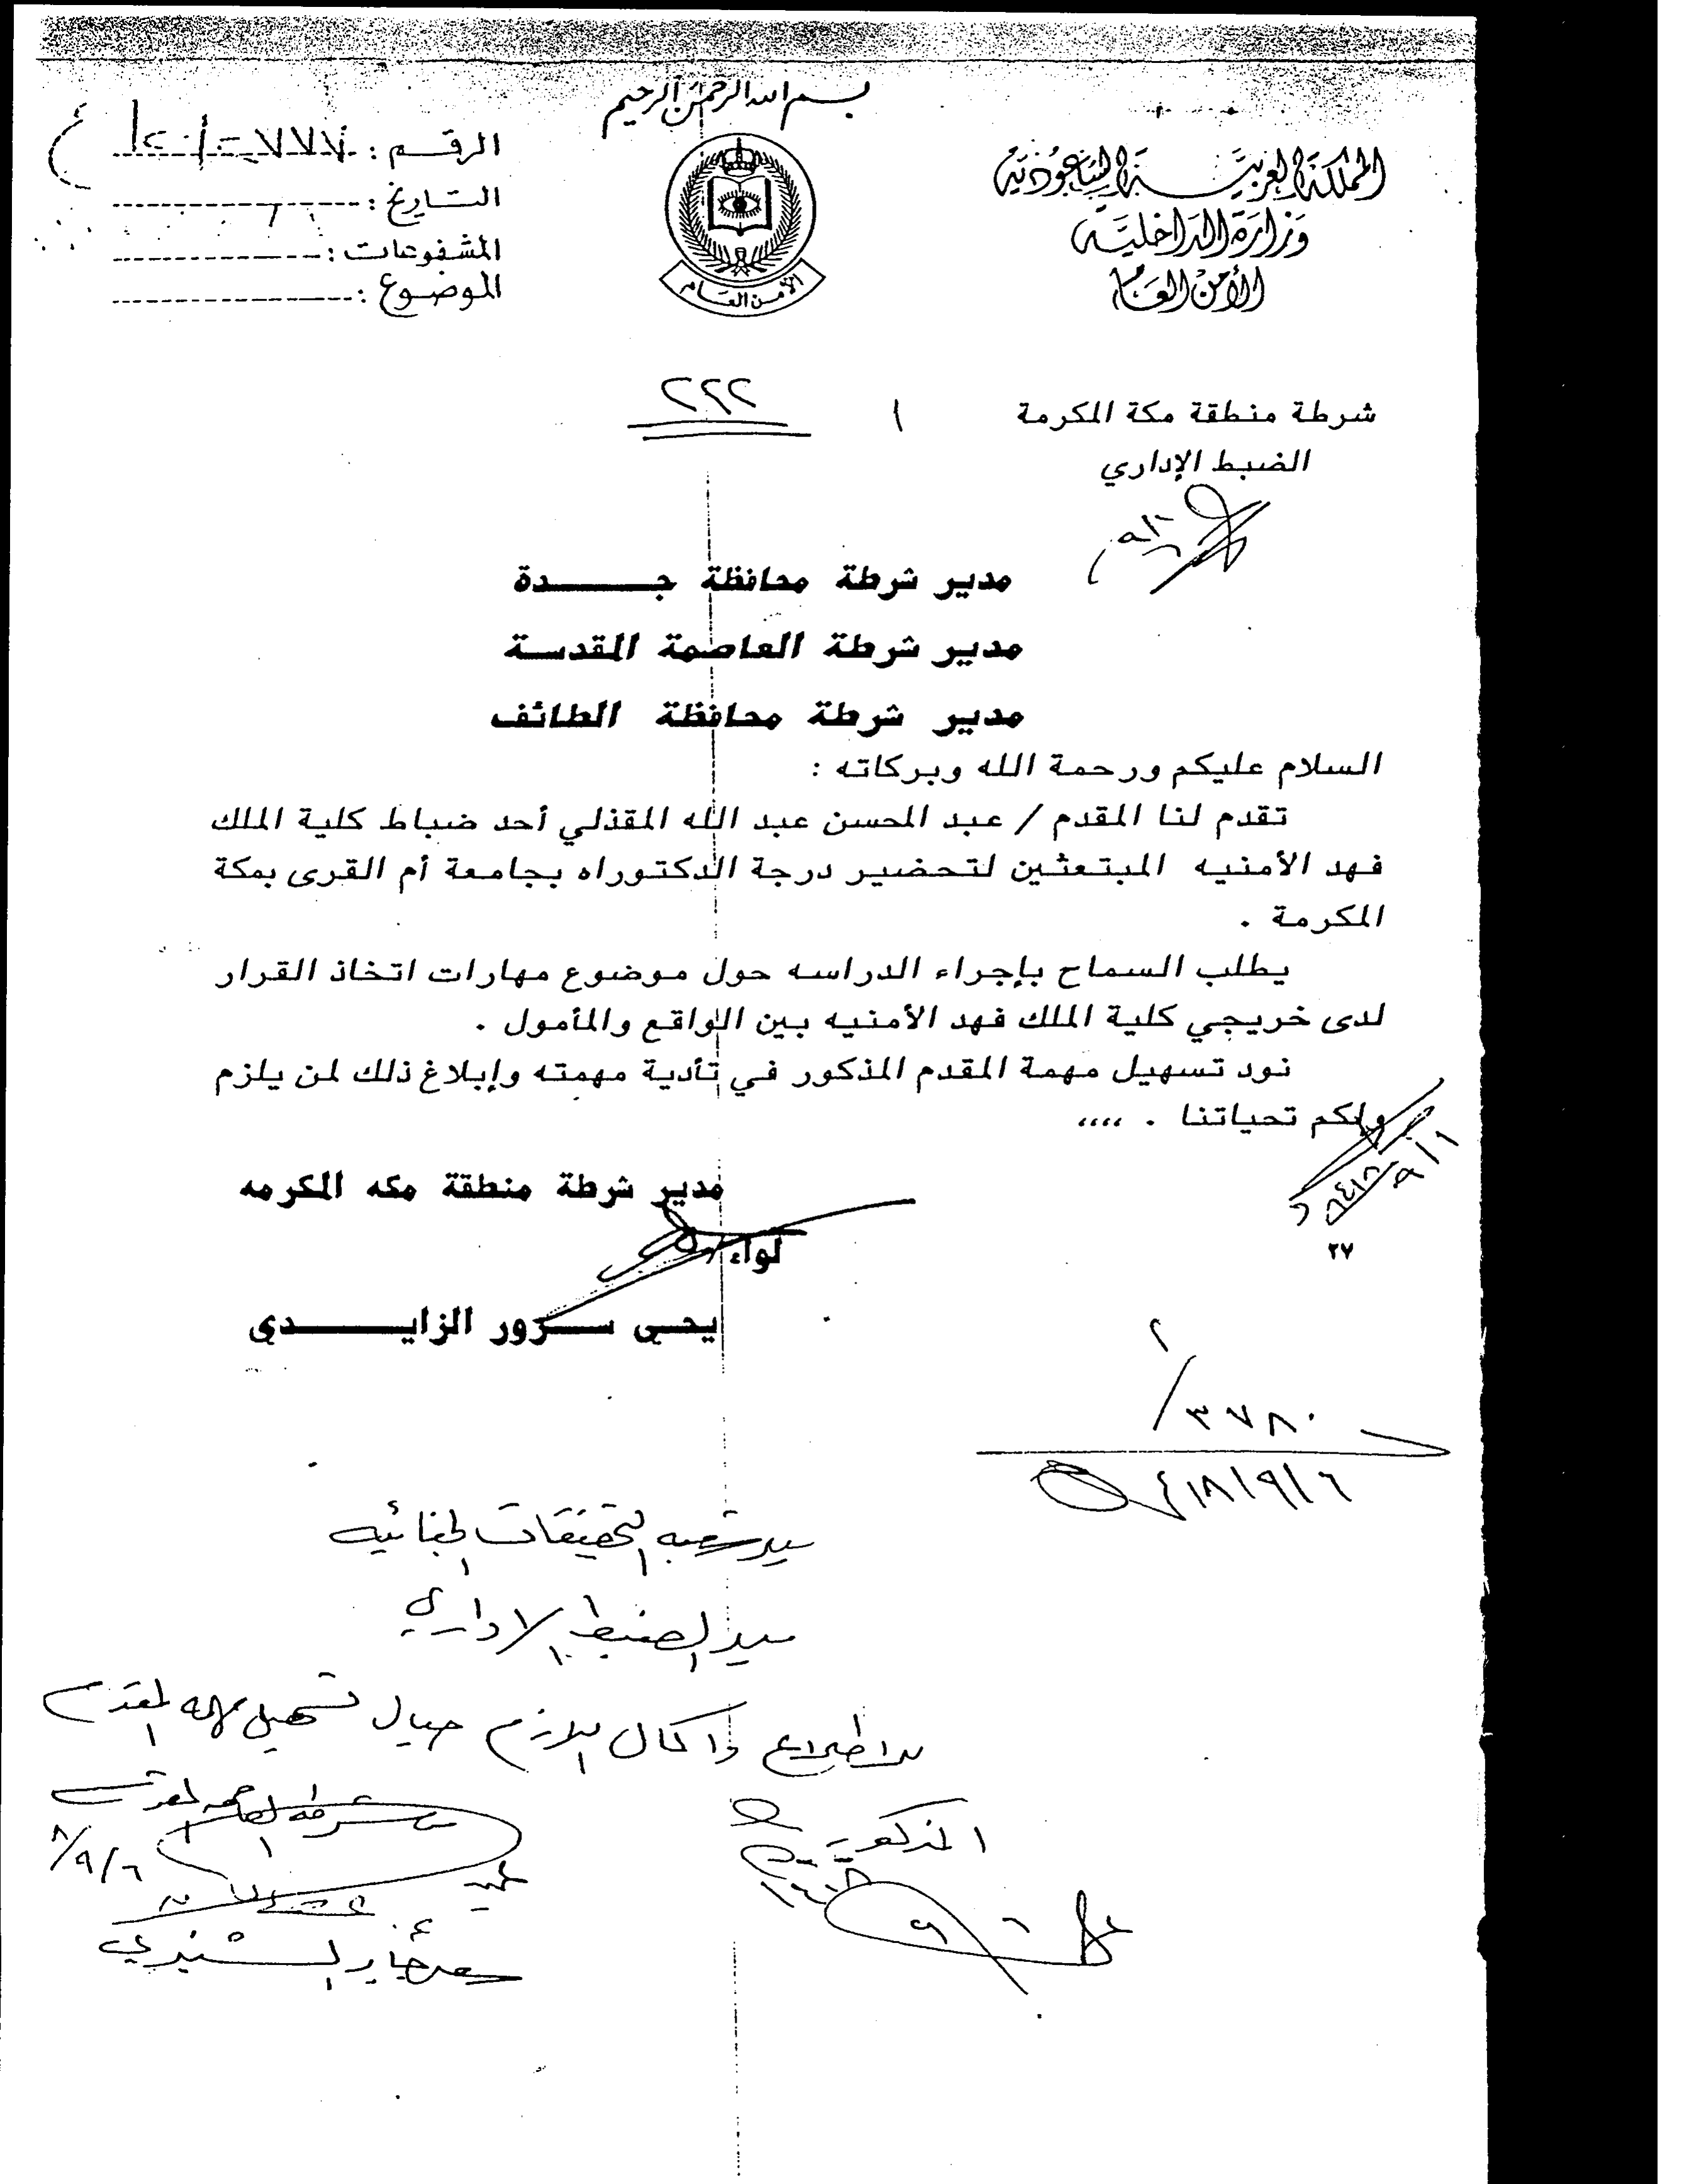 بسم الله الرحمن الرحيم
المملكة العربية السعودية
وزارة الداخلية
الأمن العام
الرقم :
التاريخ :
المشفوعات :
الموضوع :
الأمن العام
شرطة منطقة مكة المكرمة
الضبط الإداري
٢٢٢
مدير شرطة محافظة جــــــدة
مدير شرطة العاصمة المقدسة
مدير شرطة محافظة الطائف
السلام عليكم ورحمة الله وبركاته :
تقدم لنا المقدم / عبد المحسن عبد الله المقذلي أحد ضباط كلية الملك
فهد الأمنيه المبتعثين لتحضير درجة الدكتوراه بجامعة أم القرى بمكة
المكرمة .
يطلب السماح بإجراء الدراسه حول موضوع مهارات اتخاذ القرار
لدى خريجي كلية الملك فهد الأمنيه بين الواقع والمأمول .
نود تسهيل مهمة المقدم المذكور في تأدية مهمته وإبلاغ ذلك لمن يلزم
ولكم تحياتنا . ،،،،
مدير شرطة منطقة مكه المكرمه
لواء /
يحيى ســرور الزايــــــدي
٢٧
٣٧٨٠
٤١٨/٩/٦
التحقيقات الجنائيه
الضبط الاداري
للاطلاع واكمال اللازم حيال تسهيل مهمه المقدم
المذكور
شرطه العاصمه المقدسه
٨/٩/٦